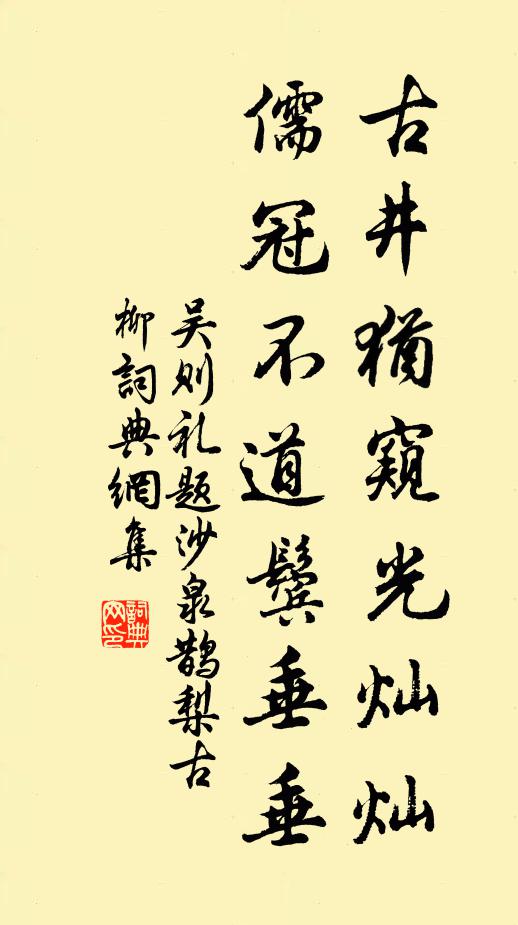 古井犹窥光灿灿
儒冠不道鬓垂垂
吴则礼题沙泉鹊梨古
柳詞典網集
詞典网印